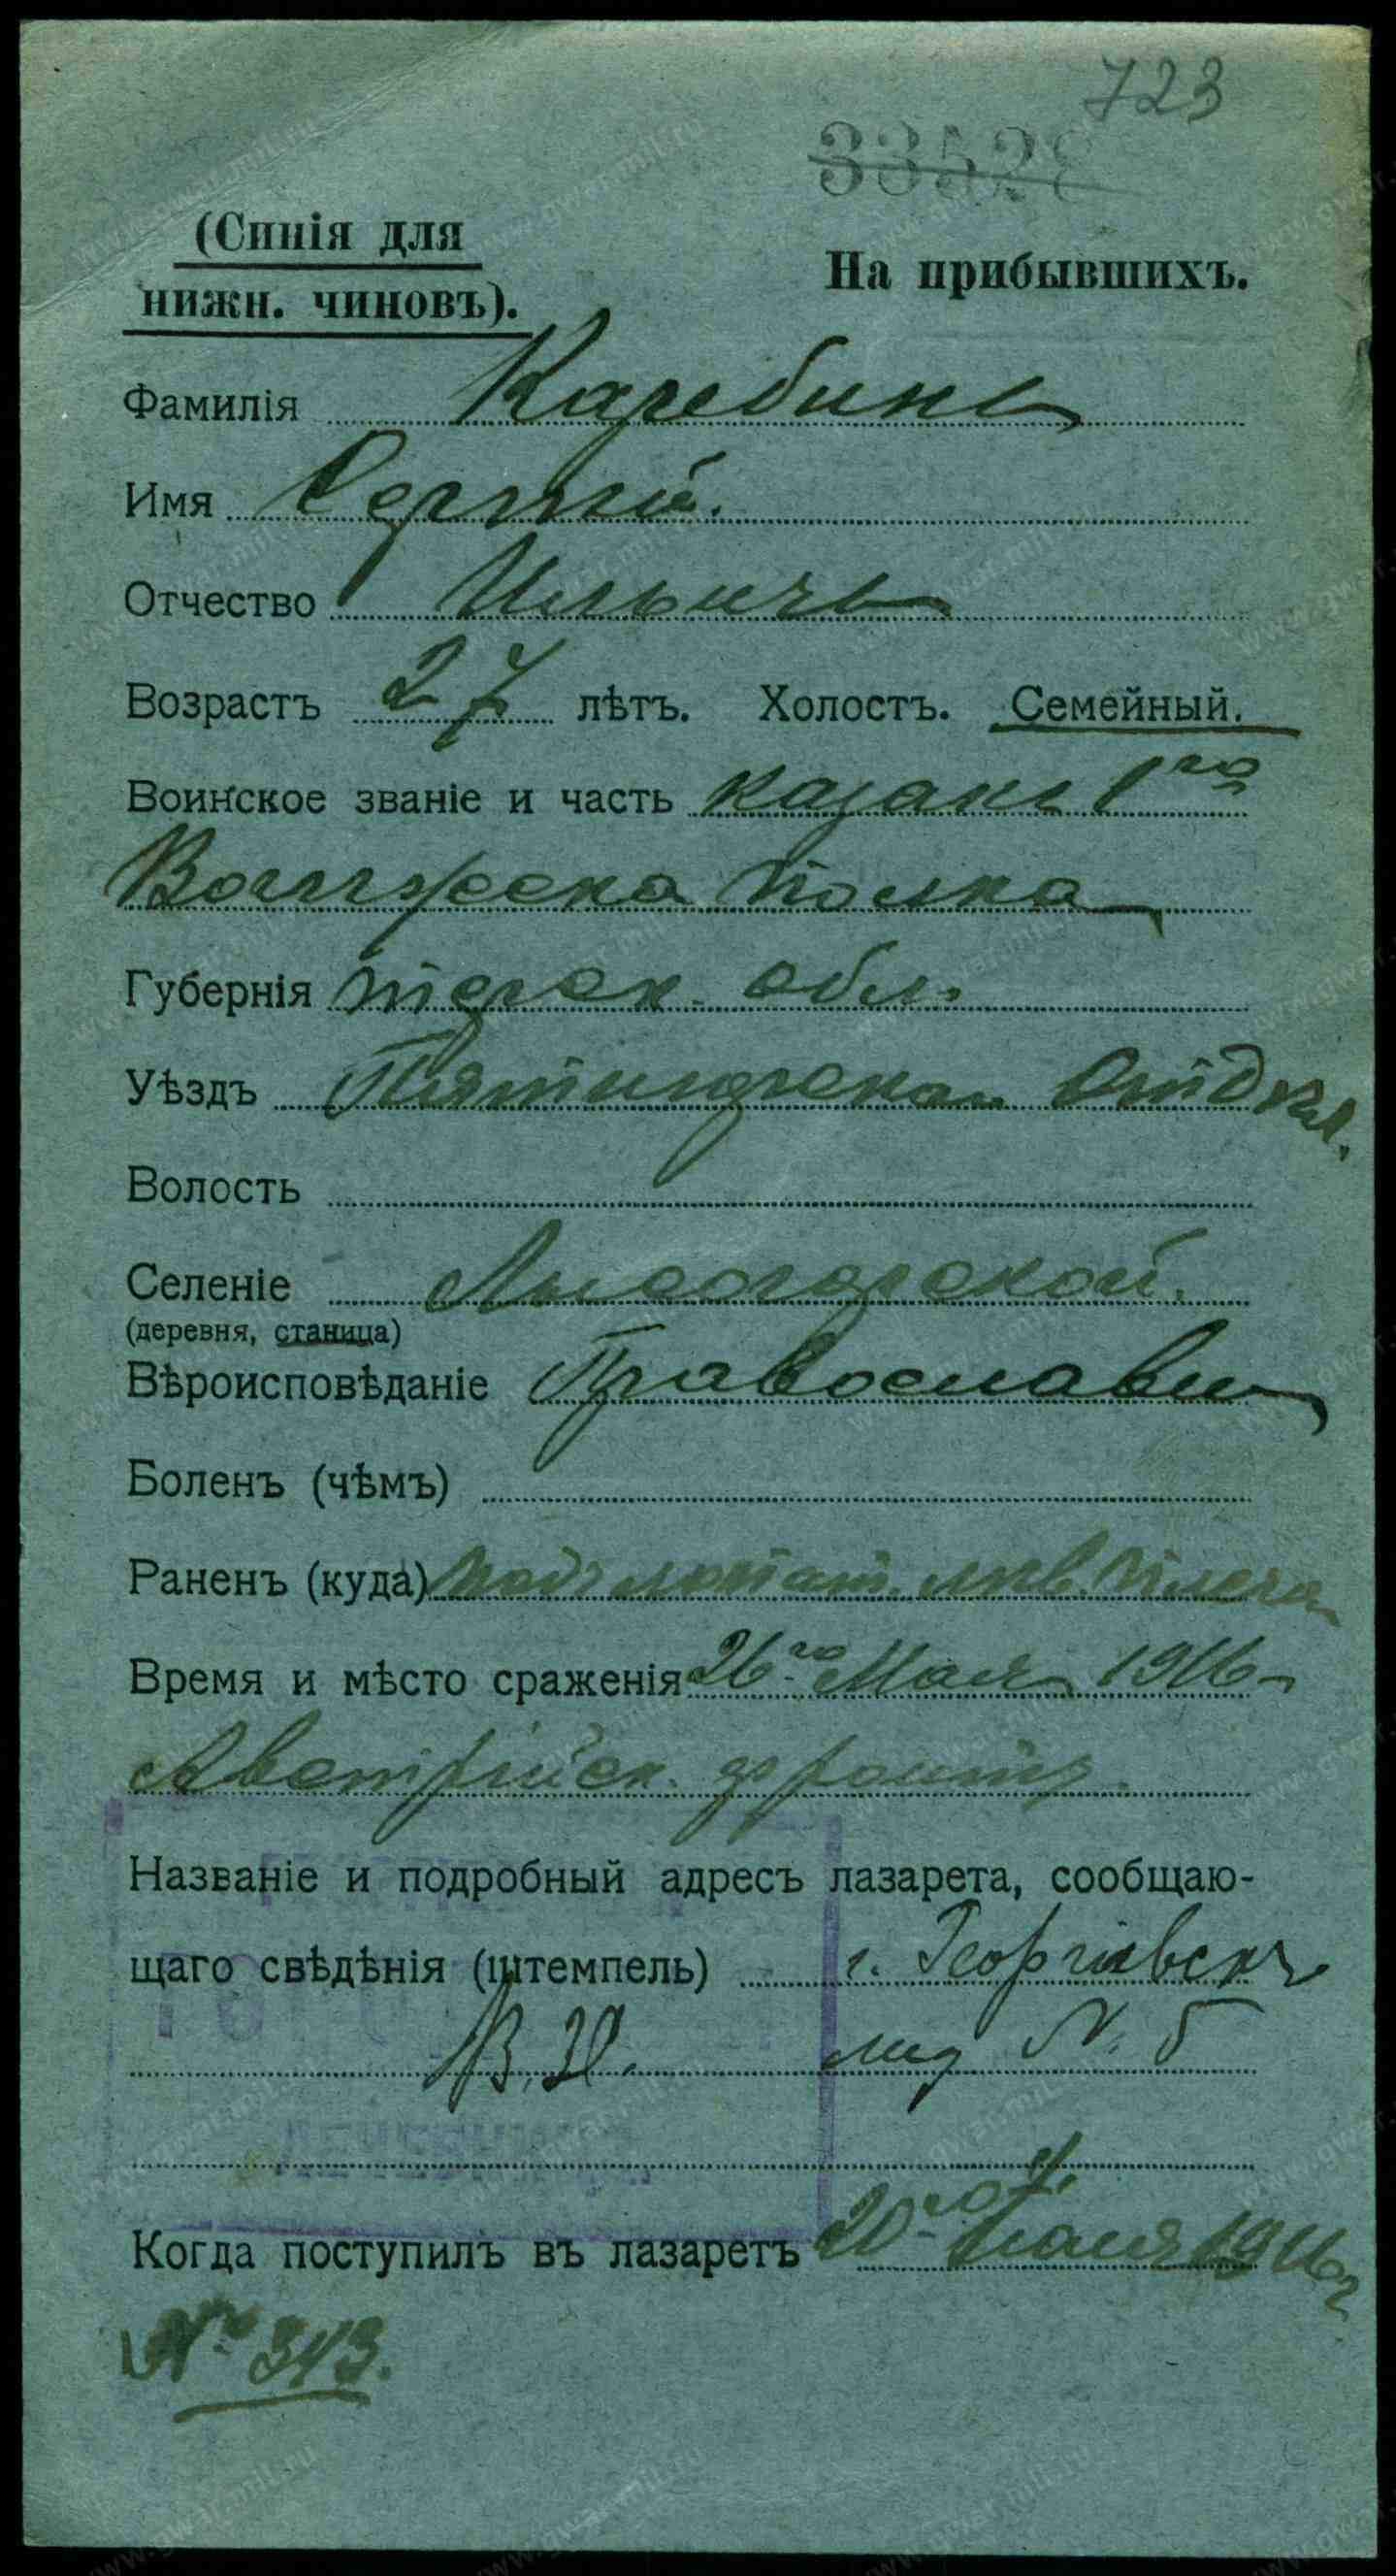 723
33528
(Синія для
На прибывшихъ.
нижн. чиновъ).
Фамилія Каребинъ
Имя Сергѣй.
Отчество Ильичъ
Возрастъ 27 лѣтъ. Холостъ. Семейный.
Воинское званіе и часть казакъ 1го
Волгжска полка
Губернія терск. обл.
Уѣздъ Пятигорска Отдѣл.
Волость
Селеніе Лысогорской.
(деревня, станица)
Вѣроисповѣданіе Православн
Боленъ (чѣмъ)
Раненъ (куда) лѣв. плеча
Время и мѣсто сраженія 26го Мая 1916
Австрійск. фронтъ.
Названіе и подробный адресъ лазарета, сообщаю-
щаго свѣдѣнія (штемпель) г. Георгіевскъ
лаз N. 5
Когда поступилъ въ лазаретъ 20го 1916г
№ 343.